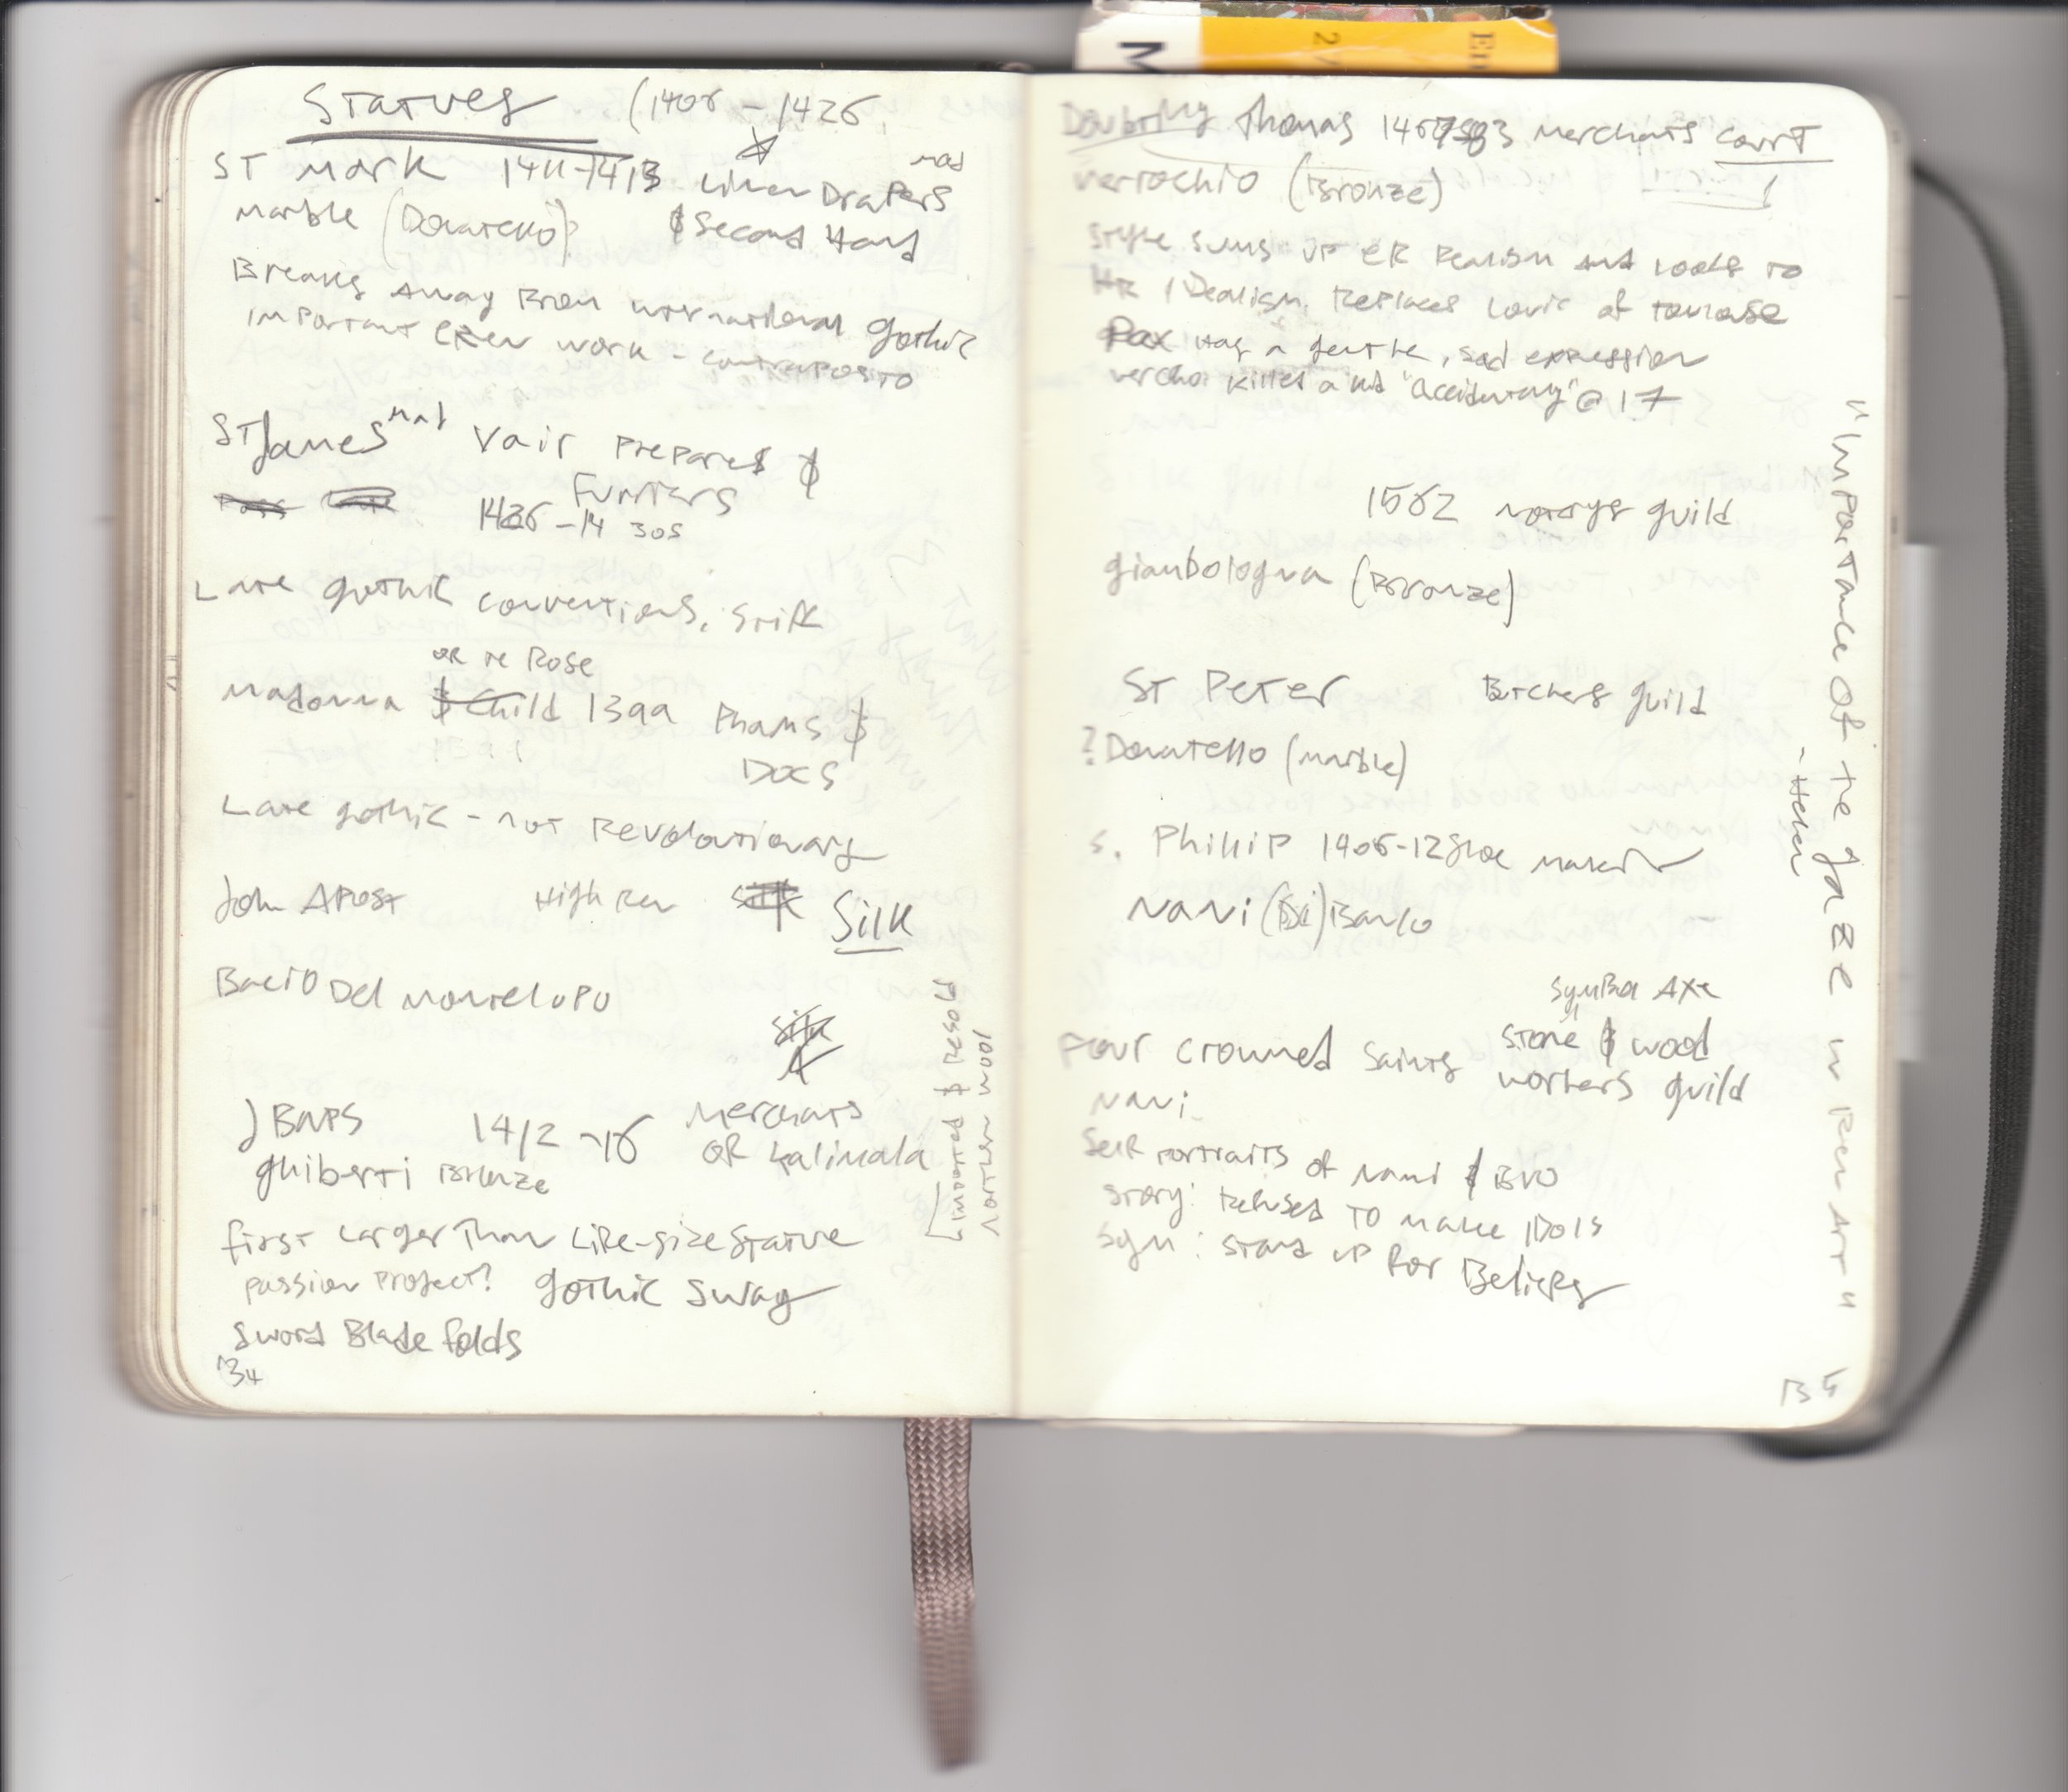 Statues (1406 - 1426
ST Mark 1411-1413 Linen Drapers
Marble (Donatello)? & Second Hand
Breaks Away From International Gothic
Important ERen work - contraposto
ST James Vair Preparers &
Furriers
1426 - 14 30s
Late gothic conventions, stiff
or te Rose
Madonna & Child 1399 Pharms &
Docs
Late gothic - not Revolutionary
John Apost High Ren Silk
Bacio Del Montelupo
silk
J BAPS 1412 - 16 Merchants
ghiberti Bronze OR Kalimala
imported & resold
northern wool
first Larger Than Life-size Statue
passion project? Gothic Sway
Sword Blade folds
134
Doubting Thomas 1467-83 Merchants Court
Verrochio (Bronze)
Style sums up ER Realism and looks to
HR Idealism. Replaces Louis of Toulouse
has a gentle, sad expression
Vercho. killed a kid "accidentaly" @ 17
1562 notarys guild
giambologna (Bronze)
ST Peter Butchers guild
? Donatello (marble)
S. Phillip 1406-12 Shoe maker
Nani (Di) Banco
Symbol Axe
Four Crowned Saints Stone & wood
workers guild
Nani
Self portraits of Nani & Bro
Story: Refused to make IDols
Sym: Stand up for Beliefs
"Importance of te gaze in Ren Art"
- Helen
135
M
2